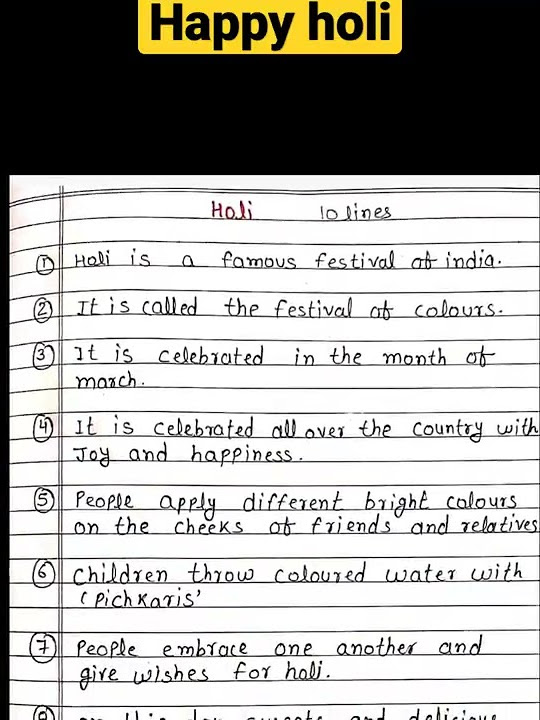 Happy holi
Holi 10 lines
① Holi is a famous festival of india.
② It is called the festival of colours.
③ It is celebrated in the month of
march.
④ It is celebrated all over the country with
Joy and happiness.
⑤ People apply different bright colours
on the cheeks of friends and relatives
⑥ Children throw coloured water with
'Pichkaris'
⑦ People embrace one another and
give wishes for holi.
⑧ on this day sweets and delicious